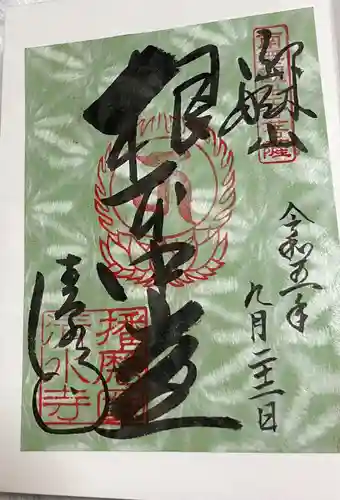 御嶽山
根本中堂
清水寺
令和五年
九月二十二日
播磨国
清水寺